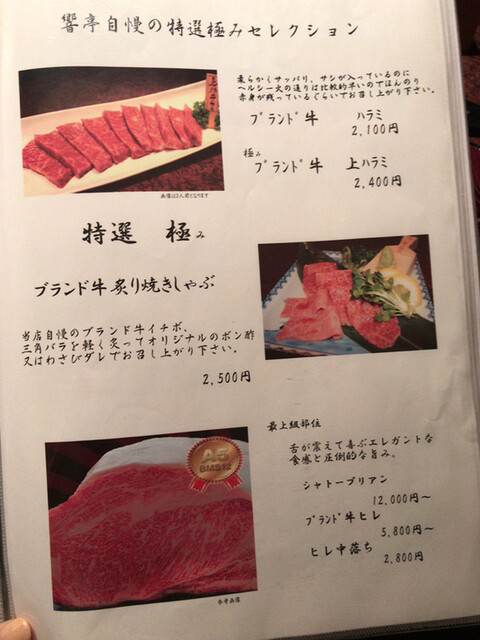 響亭自慢の特選極みセレクション
柔らかしサッパリ、サシが入っているのに
ヘルシー火の通りは比較的早いのでほんのり
赤身が残っているぐらいでお召し上がり下さい。
ブランド牛 ハラミ
2,100円
極み
ブランド牛 上ハラミ
2,400円
画像は2人前となります
特選 極み
ブランド牛炙り焼きしゃぶ
当店自慢のブランド牛イチボ、
三角バラを軽く炙ってオリジナルのポン酢
又はわさびダレでお召し上がり下さい。
2,500円
最上級部位
舌が震えて喜ぶエレガントな
食感と圧倒的な旨み。
シャトーブリアン
12,000円〜
ブランド牛ヒレ
5,800円〜
ヒレ中落ち
2,800円
A5
BMS12
参考画像